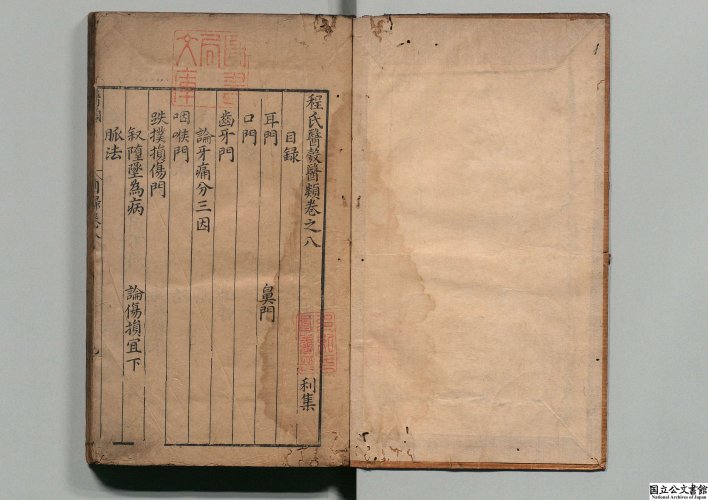 程氏醫彀醫類卷之八 利集
目録
耳門 鼻門
口門
齒牙門
論牙痛分三因
咽喉門
跌撲損傷門
叙墮墜為病 論傷損宜下
脈法
國立公文書館
National Archives of Japan